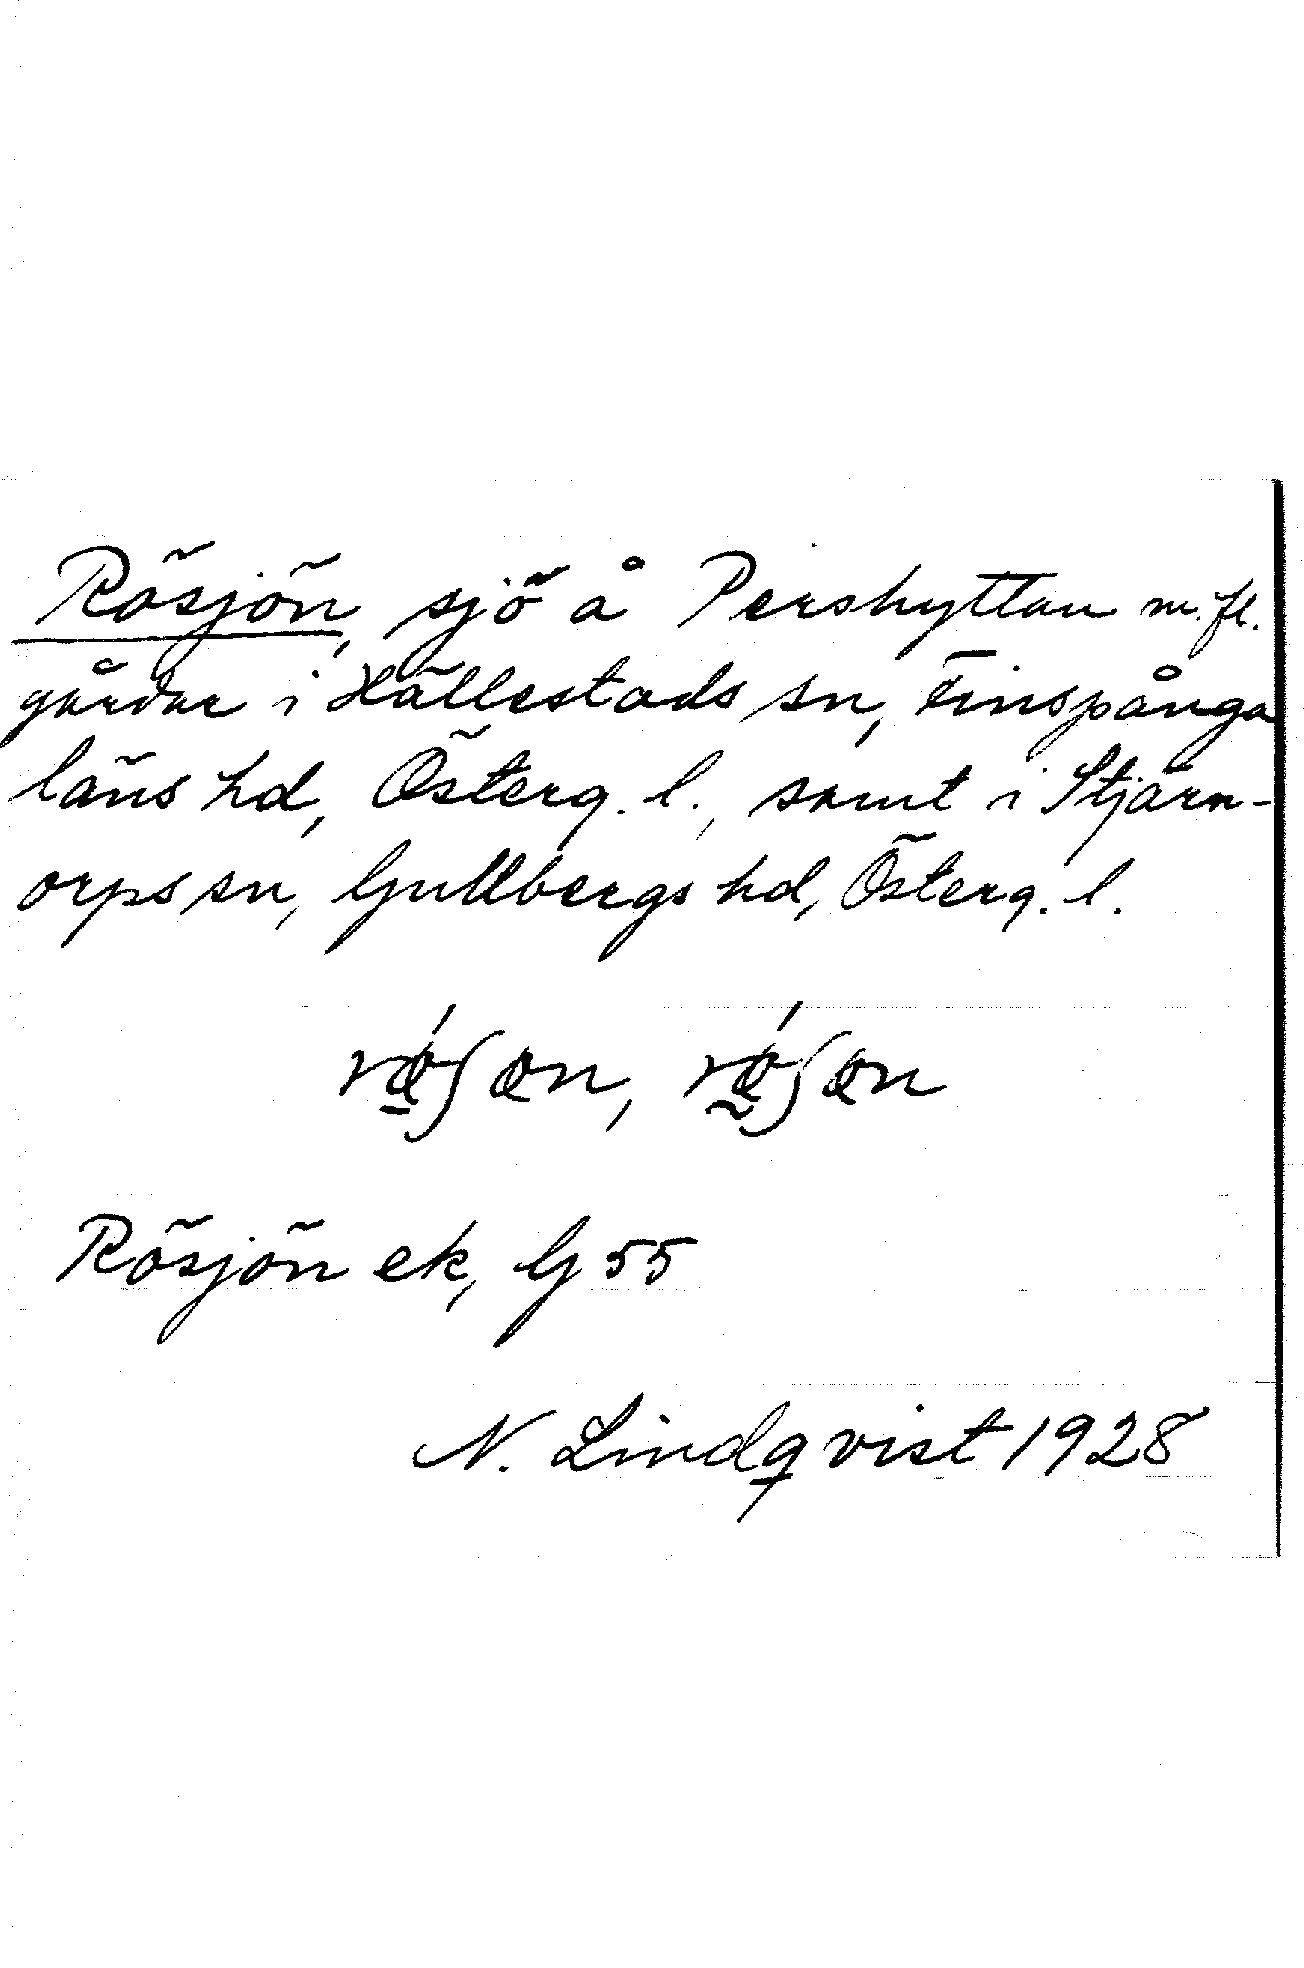 Rösjön, sjö å Pershyttan m.fl.
gårdar i Hällestads sn, Finspånga
läns hd, Österg. l., samt i Stjärn-
orps sn, Gullbergs hd, Österg. l.
Rösjön ek, G 55
N. Lindqvist 1928